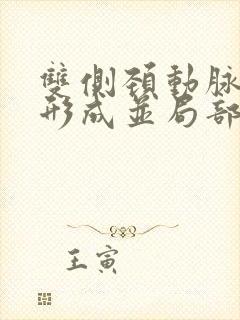 雙側頸動脈
形成並局部
王寅